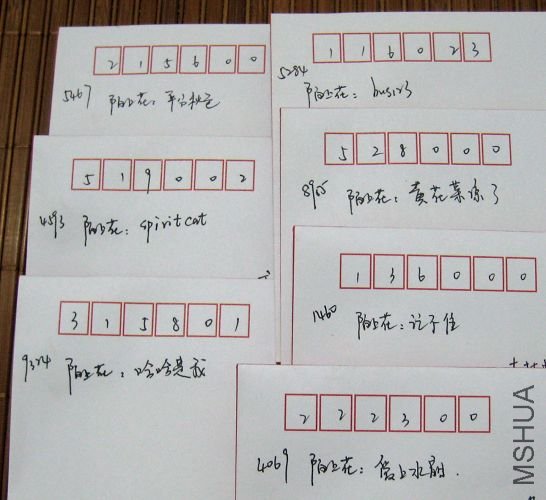 215600
5467 陌上花：平分秋色
116023
5284 陌上花：busirs
519002
4593 陌上花：spiritcat
528000
8965 陌上花：黄花菜凉了
136000
1460 陌上花：记不住
315801
9324 陌上花：哈哈是我
222300
4069 陌上花：爱上水甜.
MSHUA